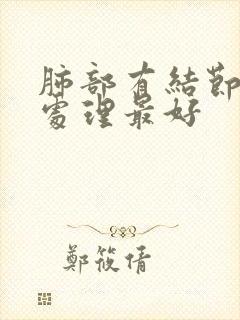 肺部有結節
處理最好
鄭筱倩